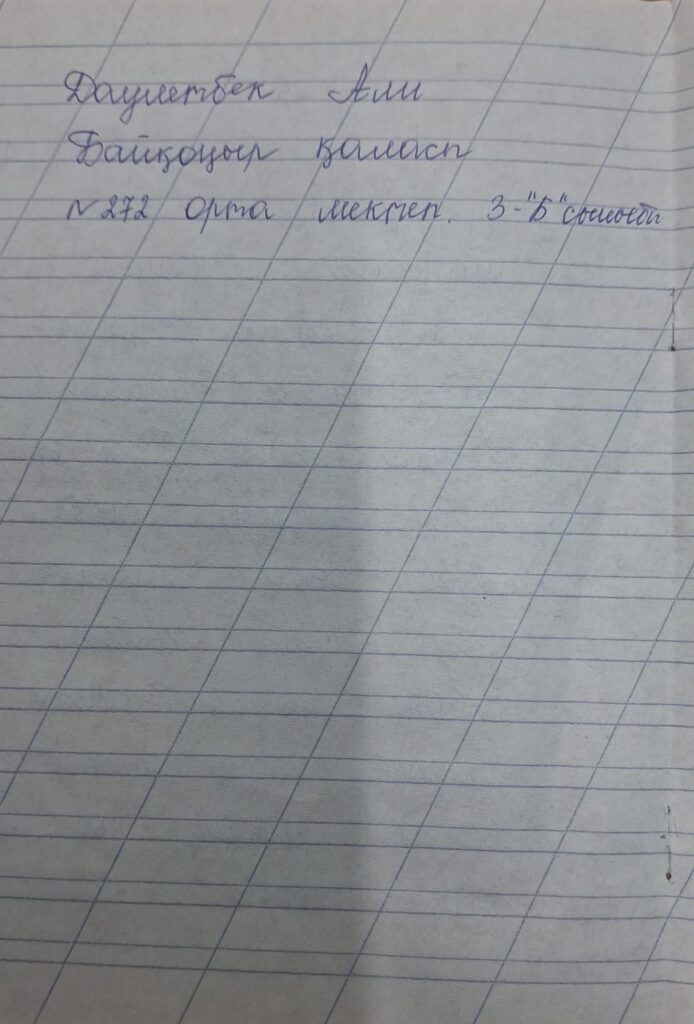 Даулетбек Али
Байқоңыр қаласы
№272 орта мектеп. 3-"Б" сыныбы